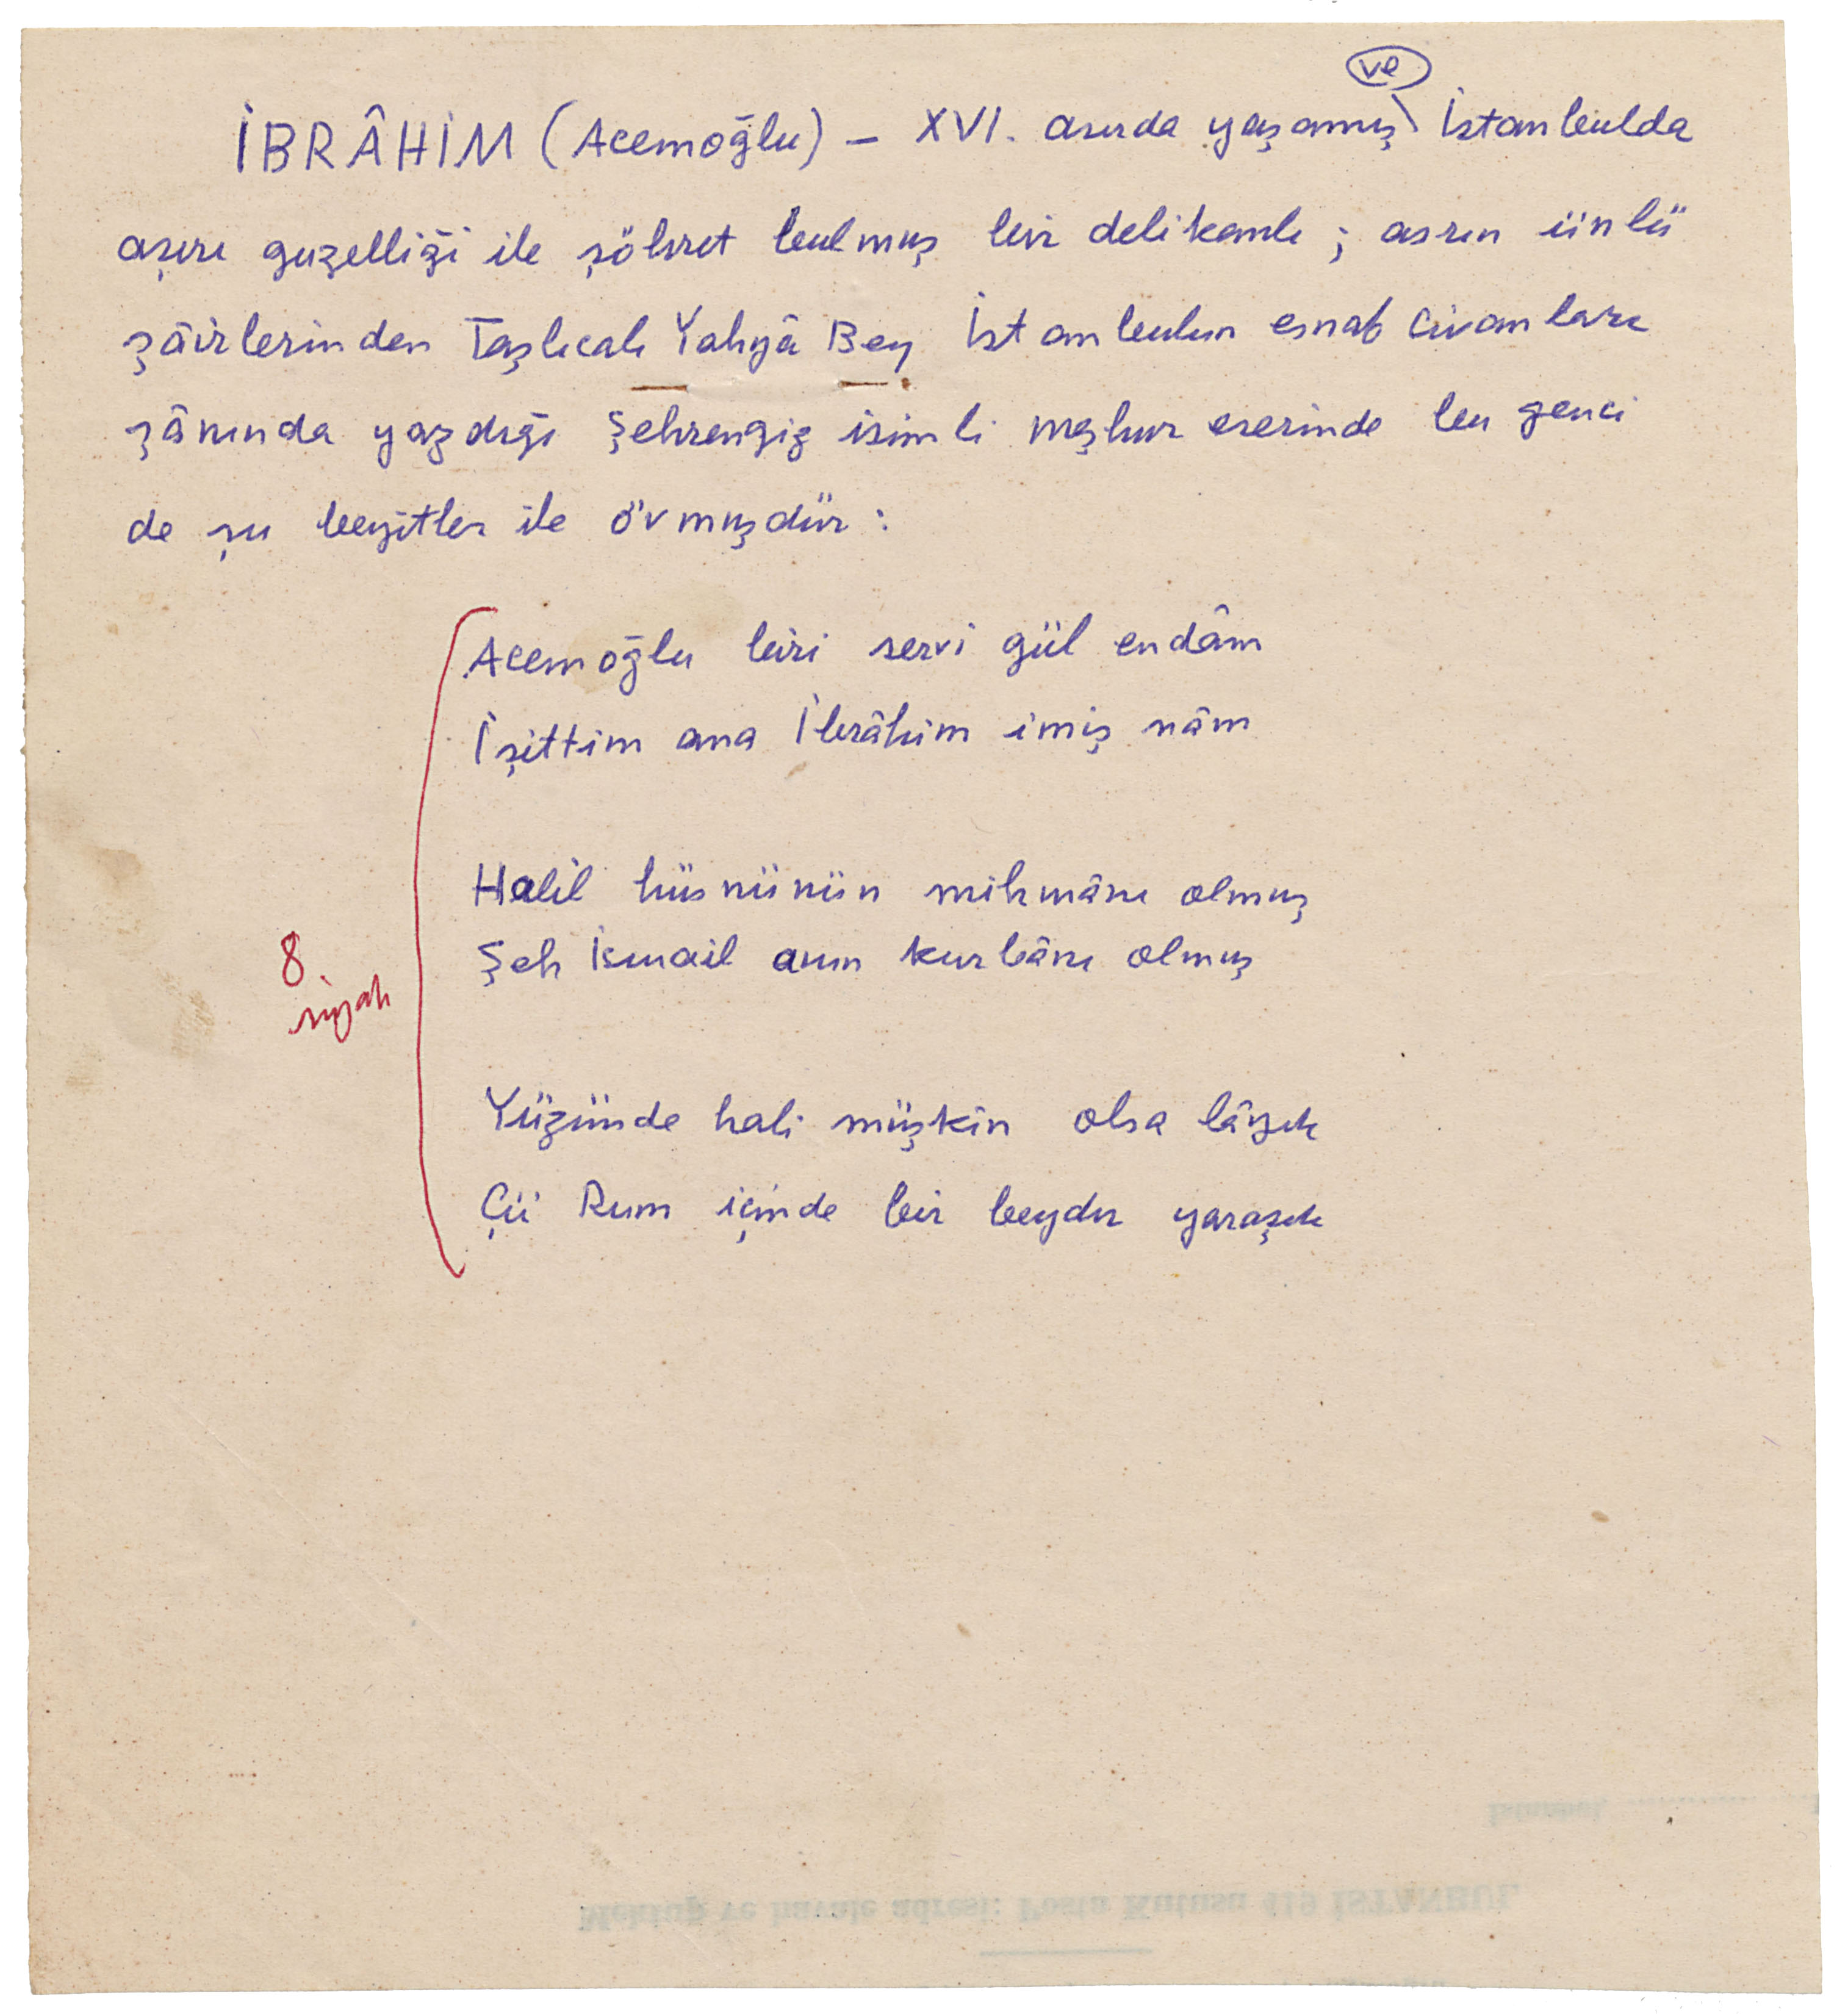 İBRÂHİM (Acemoğlu) — XVI. asırda yaşamış ve İstanbulda
aşırı guzelliği ile şöhret bulmuş bir delikanlı ; asrın ünlü
şâirlerinden Taşlıcalı Yahyâ Bey İstanbulun esnaf civanları
şânında yazdığı Şehrengiz isimli meşhur eserinde bu genci
de şu beyitler ile övmuşdür :
Acemoğlu biri servi gül endâm
İşittim ana İbrâhim imiş nâm
Halil hüsnünün mihmânı olmuş
Şeh İsmail anın kurbânı olmuş
8
siyah
Yüzünde hali müşkin olsa lâyık
Çü Rum içinde bir beydir yaraşık
İstanbul,
Mektup ve havale adresi: Posta Kutusu 419 İSTANBUL